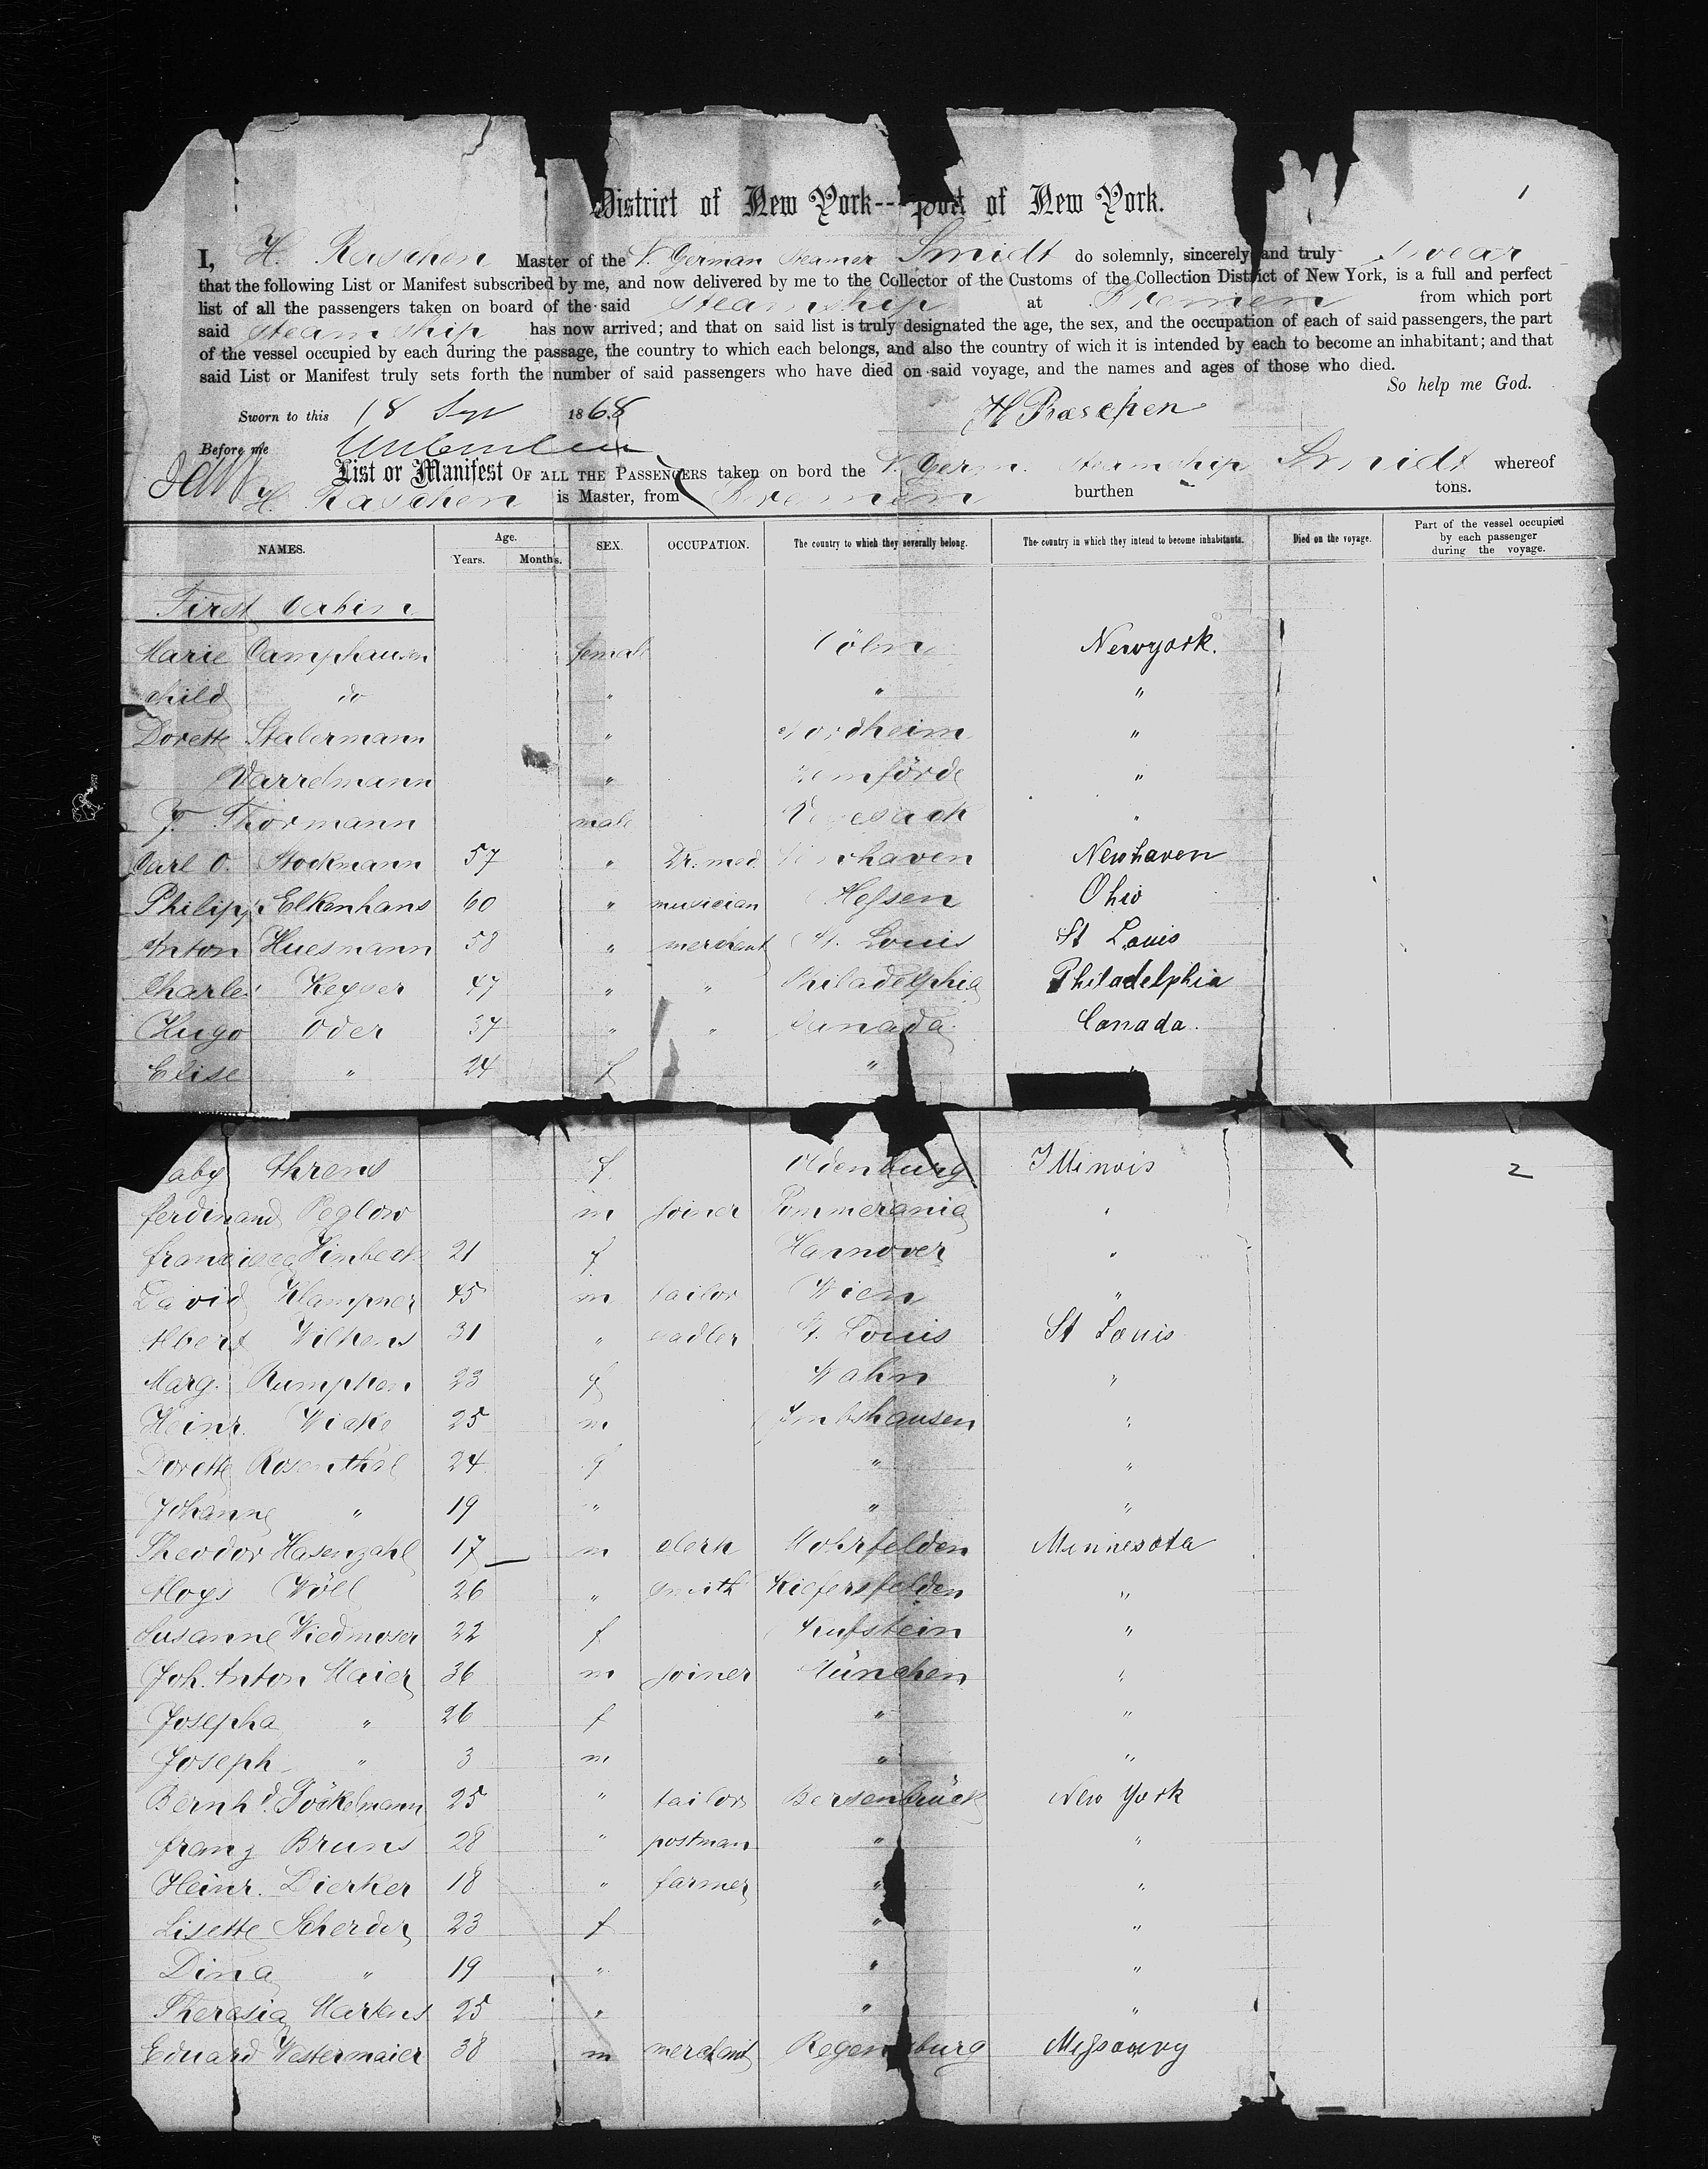 1
District of New York---Port of New York.
I, H. Raschen Master of the N. German Steamer Smidt do solemnly, sincerely and truly swear
that the following List or Manifest subscribed by me, and now delivered by me to the Collector of the Customs of the Collection District of New York, is a full and perfect
list of all the passengers taken on board of the said steamship at Bremen from which port
said steamship has now arrived; and that on said list is truly designated the age, the sex, and the occupation of each of said passengers, the part
of the vessel occupied by each during the passage, the country to which each belongs, and also the country of wich it is intended by each to become an inhabitant; and that
said List or Manifest truly sets forth the number of said passengers who have died on said voyage, and the names and ages of those who died.
So help me God.
Sworn to this 18 Sep 1868 H Raschen
Before me
List or Manifest OF ALL THE PASSENGERS taken on bord the N. Germ. steamship Smidt whereof
H. Raschen is Master, from Bremen burthen tons.
NAMES. Age. Years. Months. SEX. OCCUPATION. The country to which they severally belong. The country in which they intend to become inhabitants. Died on the voyage. Part of the vessel occupied by each passenger during the voyage.
First Cabin
Marie Camphausen female Cöln Newyork.
child do " " "
Dorette Stalermann " Nordheim "
Varrelmann " Lemförde "
F. Thormann male Vegesack "
Carl O. Stockmann 57 " Dr. med. Newhaven Newhaven
Philipp Elkenhans 60 " musician Heſsen Ohio
Anton Huesmann 58 " merchant St. Louis St Louis
Charles Keyser 47 " " Philadelphia Philadelphia
Hugo Oder 37 " " Canada Canada.
Elise " 24 f " "
2
aby Ahrens f. Oldenburg Illinois
ferdinand Peglow m joiner Pommerania "
francisca Himbeck 21 f Hannover "
David Klampner 45 m tailor Wien "
Albert Wilkens 31 " sadler St. Louis St Louis
Marg. Rumpken 23 f Wahn "
Heinr. Wieke 25 m Imbshausen "
Dorette Rosenthal 24 f " "
Johanne " 19 " " "
Theodor Hasenzahl 17 m clerk Mohrfelden Minnesota
Aloys Wöll 26 " smith Kiefersfelden "
Susanne Wiedmoser 22 f Kufstein "
Joh. Anton Maier 36 m joiner München "
Josepha " 26 f " "
Joseph " 3 m " "
Bernhd. Föckelmann 25 " tailor Bersenbrück New York
franz Bruns 28 " postman " "
Heinr. Dierker 18 " farmer " "
Lisette Scherder 23 f " "
Dina " 19 " " "
Theresia Markus 25 " " "
Eduard Westermaier 38 m merchant Regensburg Meſsoury